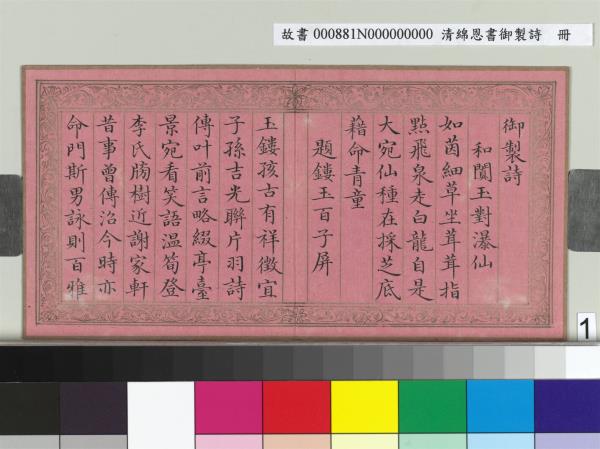 故書 000881N000000000 清綿恩書御製詩 冊
御製詩
和闐玉對瀑仙
如茵細草坐茸茸指
點飛泉走白龍自是
大宛仙種在採芝底
藉命青童
題鏤玉百子屏
玉鏤孩古有祥徵宜
子孫吉光聯片羽詩
傳叶前言略綴亭臺
景宛看笑語溫筍登
李氏牓樹近謝家軒
昔事曾傳洽今時亦
命門斯男詠則百雅
1